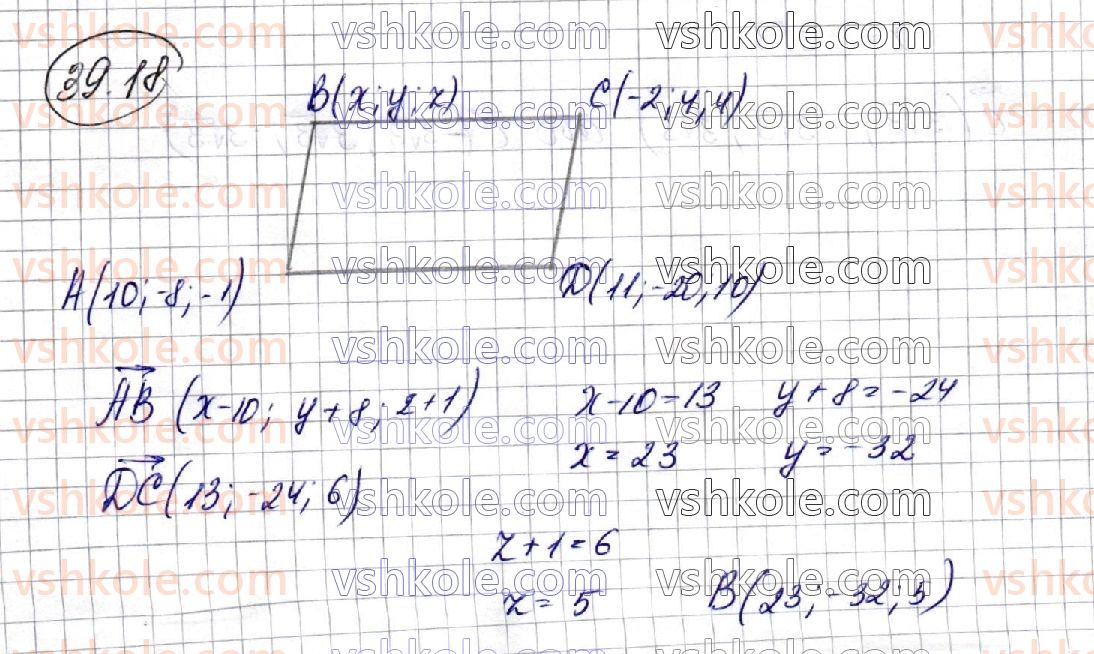 39.18
B(x; y; z) C(-2; 4, 4)
A(10; -8; -1) D(11; -20, 10)
AB (x-10; y+8; z+1) x-10=13 y+8=-24
x=23 y=-32
DC(13; -24; 6)
z+1=6
z=5 B(23; -32; 5)
vshkole.com